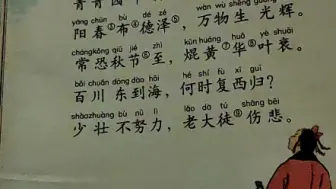 yáng chūn bù dé zé wàn wù shēng guāng
阳春④布德泽⑤，万物生光辉。
cháng kǒng qiū jié zhì kūn huáng huā yè shuāi
常恐秋节⑥至，焜黄⑦华⑧叶衰。
bǎi chuān dōng dào hǎi hé shí fù xī guī
百川东到海，何时复西归？
shào zhuàng bù nǔ lì lǎo dà tú shāng bēi
少壮不努力，老大徒⑨伤悲。